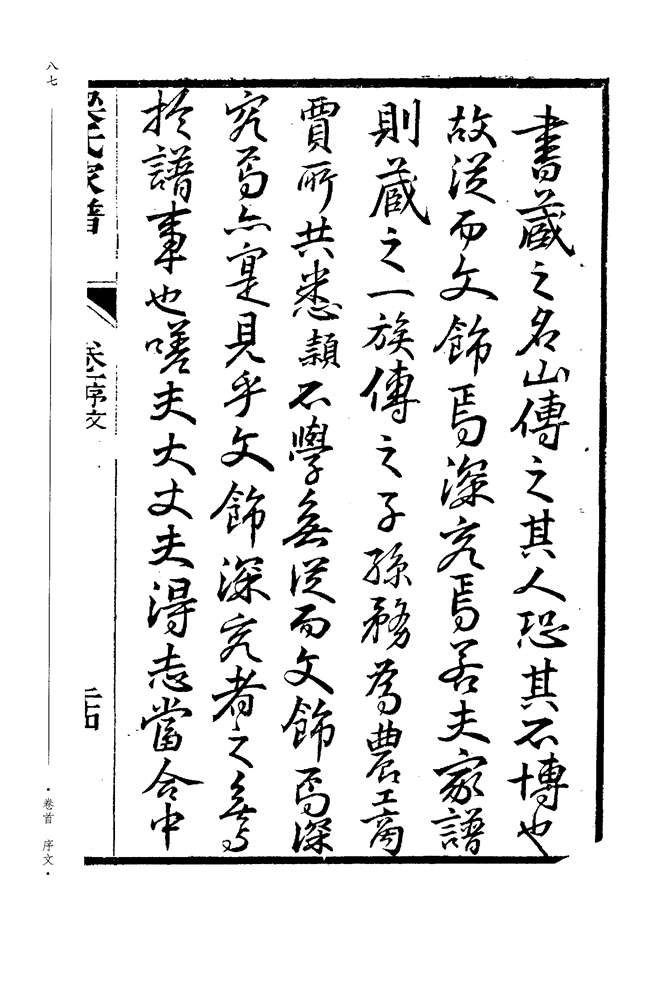 書藏之名山傳之其人恐其不博也
故從而文飾焉深究焉若夫家譜
則藏之一族傳之子孫務爲農工商
賈所共悉類不學無從而文飾焉深
究焉亦寔見乎文飾深究者之無與
於譜事也嗟夫大丈夫得志當合中
氏家譜
卷一序文
八七
·卷首 序文·